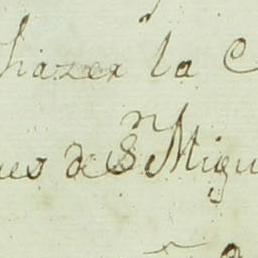 hazer la C
es de Sn Migu